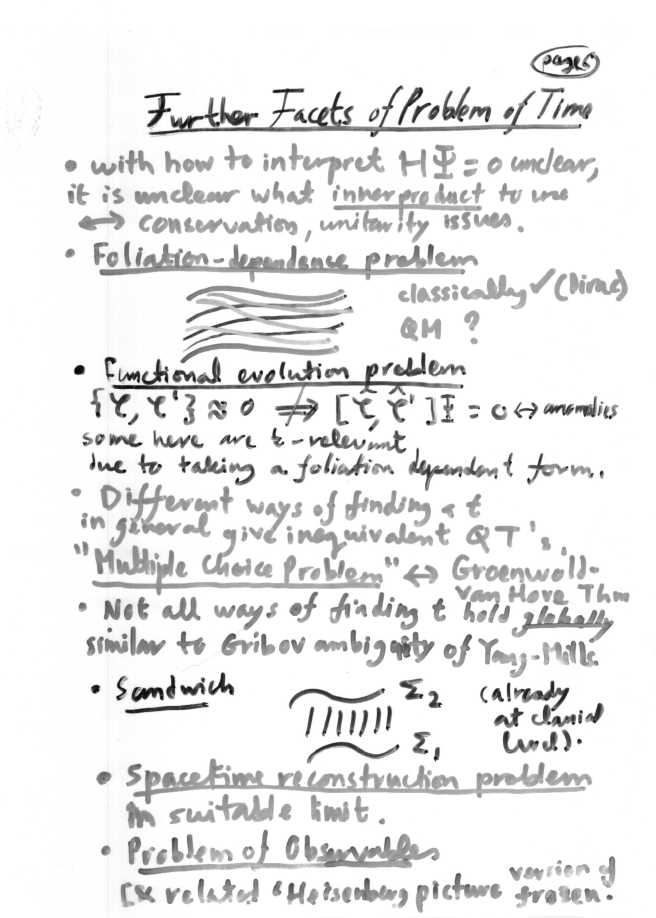 page 6
Further Facets of Problem of Time
• with how to interpret HΨ = 0 unclear,
it is unclear what inner product to use
↔ conservation, unitarity issues.
• Foliation-dependence problem
classically ✓ (Dirac)
QM ?
• Functional evolution problem
{ℋ, ℋ'} ≈ 0 ⇏ [ℋ̂, ℋ̂']Ψ = 0 ↔ anomalies
some here are t-relevant
due to taking a foliation dependent form.
• Different ways of finding a t
in general give inequivalent QT's.
"Multiple Choice Problem" ↔ Groenwold-
Van Hove Thm
• Not all ways of finding t hold globally
similar to Gribov ambiguity of Yang-Mills.
• Sandwich
Σ₂
Σ₁
(already
at classical
level).
• Spacetime reconstruction problem
in suitable limit.
• Problem of Observables
related Heisenberg picture version of
frozen.